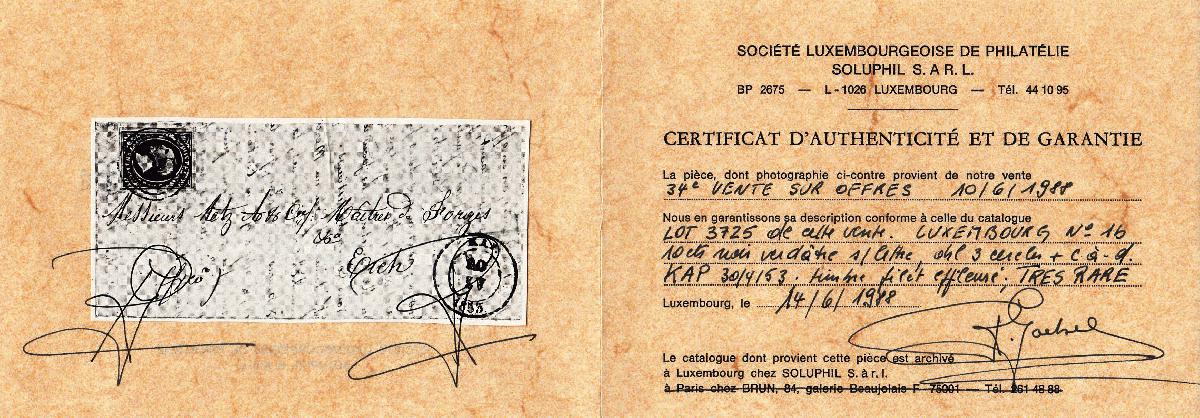 Messieurs Metz & Cie Maîtres de Forges
Eich
KAP
30
1853
SOCIÉTÉ LUXEMBOURGEOISE DE PHILATÉLIE
SOLUPHIL S. A R. L.
BP 2675 — L-1026 LUXEMBOURG — Tél. 44 10 95
CERTIFICAT D'AUTHENTICITÉ ET DE GARANTIE
La pièce, dont photographie ci-contre provient de notre vente
34e VENTE SUR OFFRES 10/6/1988
Nous en garantissons sa description conforme à celle du catalogue
LOT 3725 de cette vente. LUXEMBOURG No 1b
10cts noir verdâtre s/lettre, obl 3 cercles + c à-d.
KAP 30/4/53. timbre filet effleuré, TRES RARE
Luxembourg, le 14/6/1988
Le catalogue dont provient cette pièce est archivé
à Luxembourg chez SOLUPHIL S. à r. l.
à Paris chez BRUN, 84, galerie Beaujolais F 75001 — Tél. 261 48 88